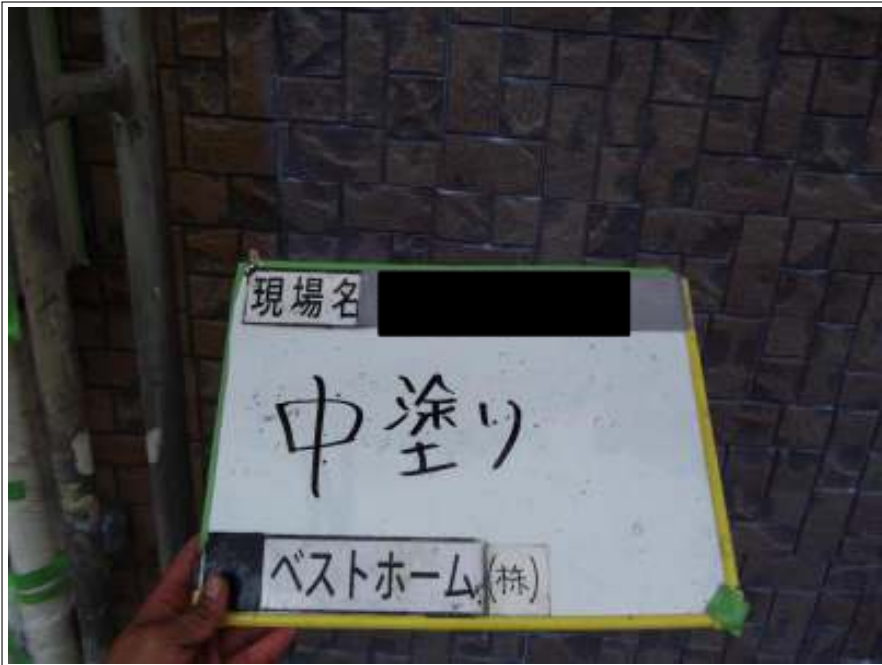 現場名
中塗り
ベストホーム(株)